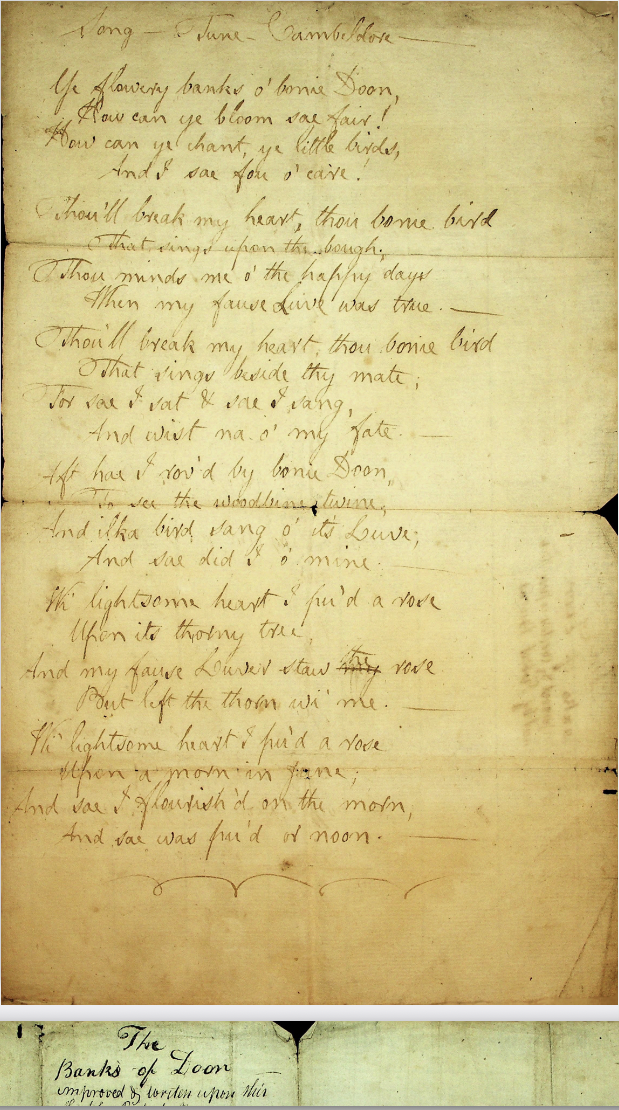 Song — Tune — Cambdelore —
Ye flowery banks o' bonie Doon,
How can ye bloom sae fair!
How can ye chant, ye little birds,
And I sae fou o' care!
Thou'll break my heart, thou bonie bird
That sings upon the bough;
Thou minds me o' the happy days
When my fause Luve was true. —
Thou'll break my heart, thou bonie bird
That sings beside thy mate;
For sae I sat & sae I sang,
And wist na o' my fate. —
Aft hae I rov'd by bonie Doon,
To see the woodbine twine,
And ilka bird sang o' its Luve;
And sae did I o' mine. —
Wi' lightsome heart I pu'd a rose
Upon its thorny tree,
And my fause Luver staw my the rose
But left the thorn wi' me. —
Wi' lightsome heart I pu'd a rose
Upon a morn in June;
And sae I flourish'd on the morn,
And sae was pu'd or noon. —
The
Banks of Doon
improved &
upon this